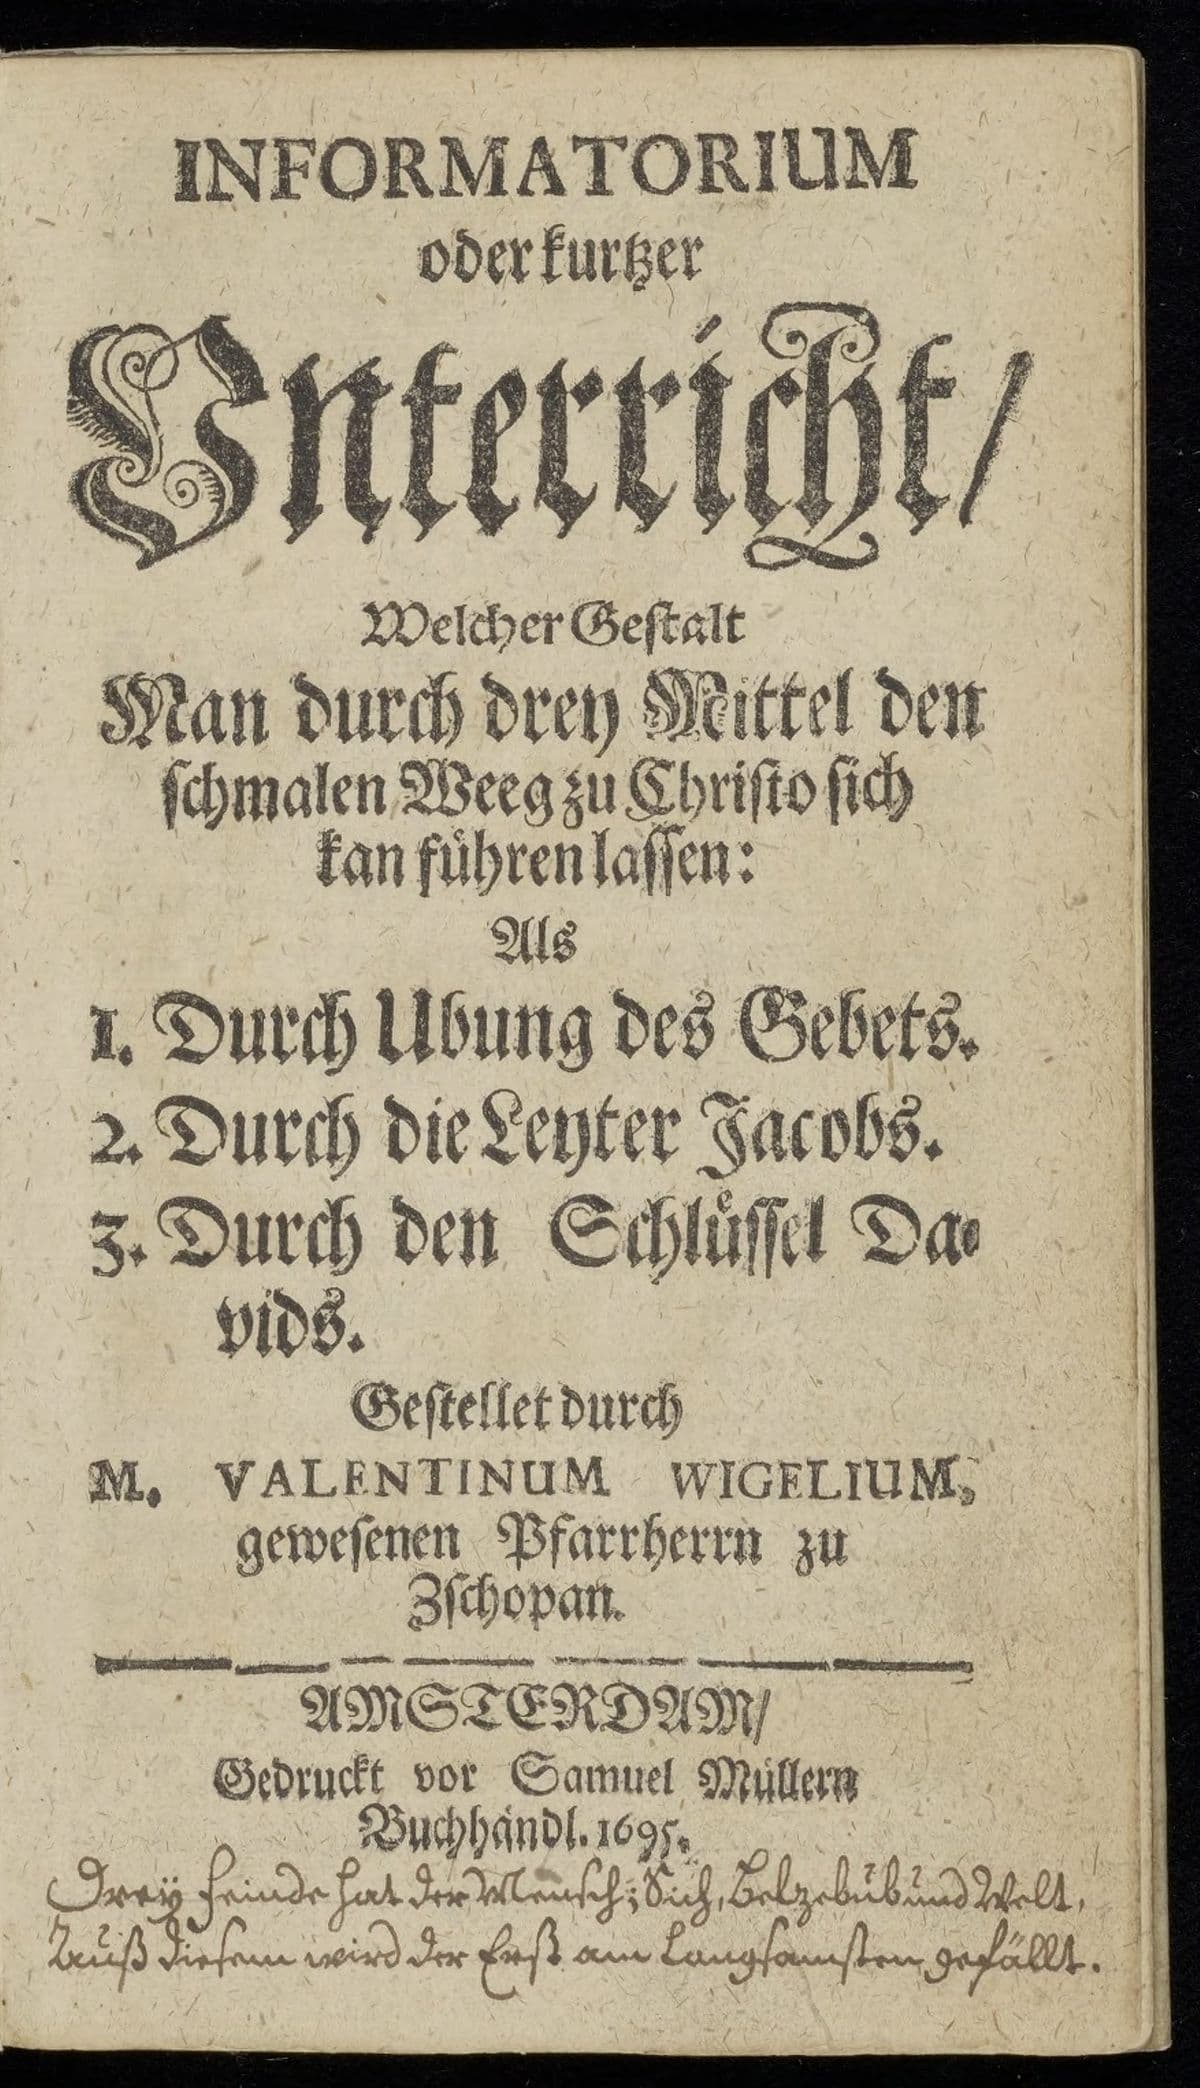 INFORMATORIUM
oder kurtzer
Vnterricht/
Welcher Gestalt
Man durch drey Mittel den
schmalen Weeg zu Christo sich
kan führen lassen:
Als
1. Durch Ubung des Gebets.
2. Durch die Leyter Jacobs.
3. Durch den Schlüssel Da-
vids.
Gestellet durch
M. VALENTINUM WIGELIUM,
gewesenen Pfarrherrn zu
Zschopan.
AMSTERDAM/
Gedruckt vor Samuel Müllern
Buchhändl. 1695.
Drey Feinde hat der Mensch; Sich, Belzebub und Welt,
Auß diesem wird der Erst am Langsamsten gefällt.